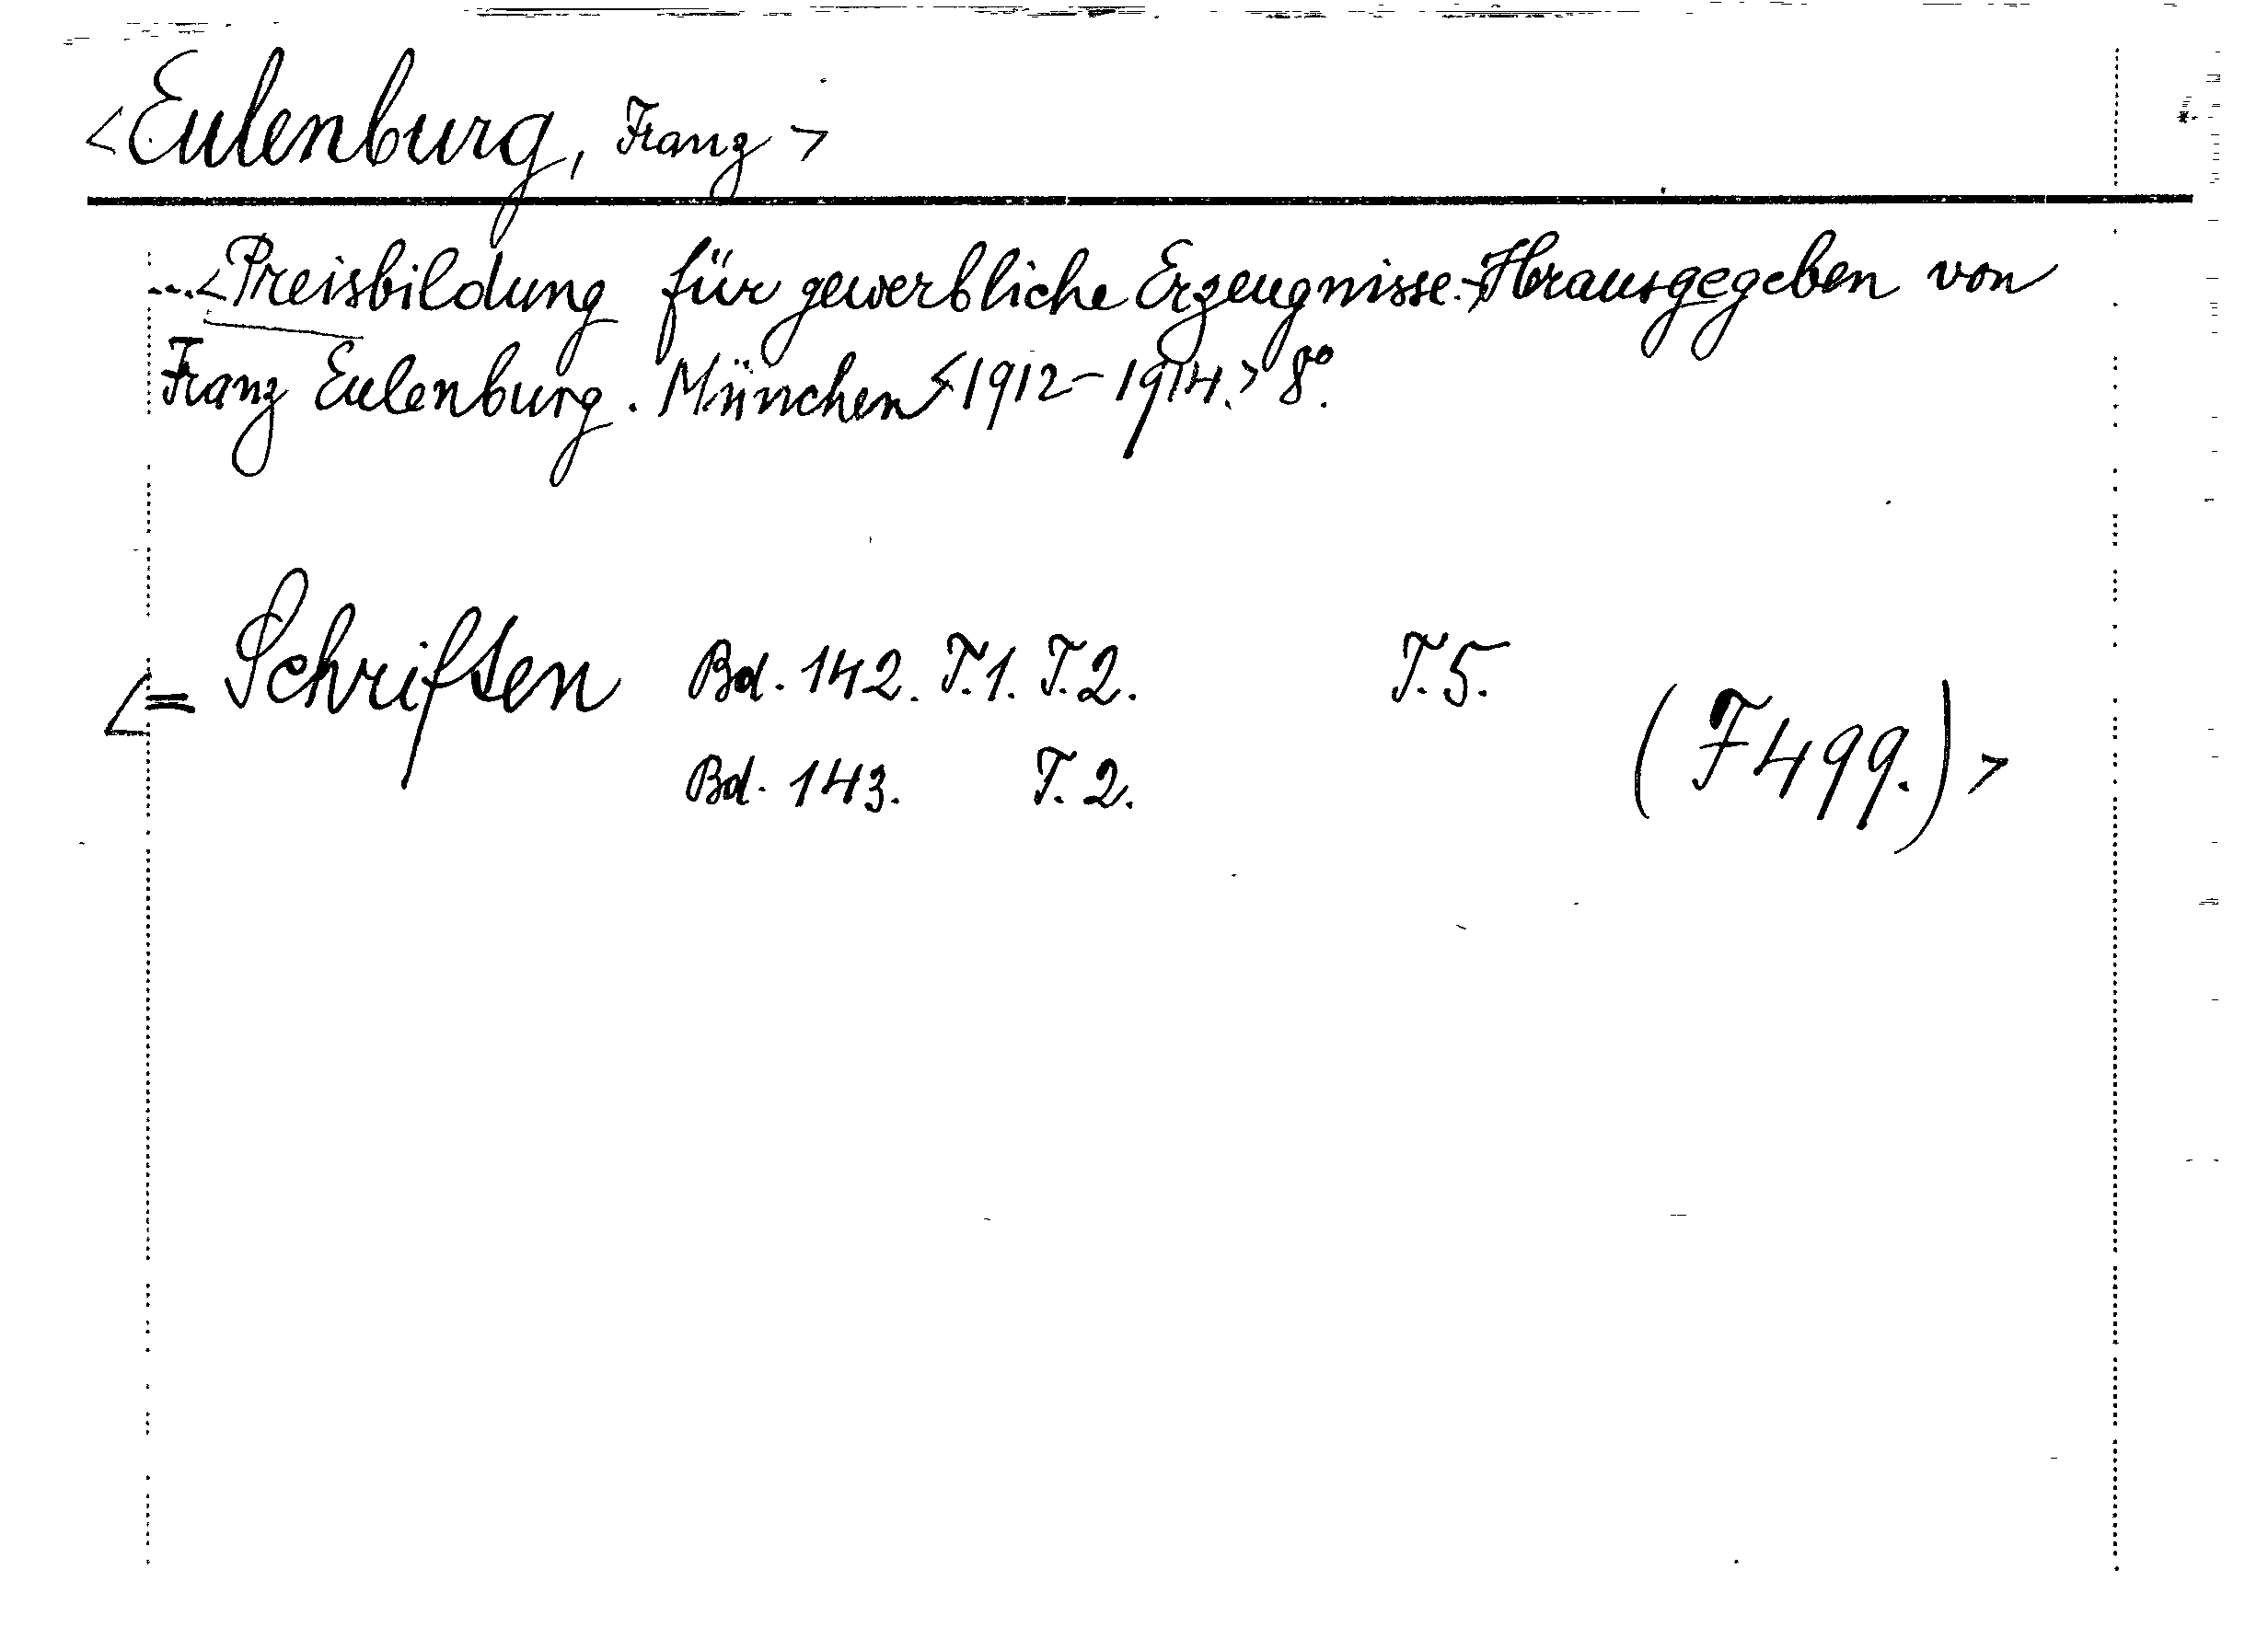 <Eulenburg, Franz>
...<Preisbildung für gewerbliche Erzeugnisse.> Herausgegeben von
Franz Eulenburg. München <1912-1914.> 8°.
<= Schriften Bd. 142. T.1. T.2. T.5.
Bd. 143. T.2.
(F499.)>